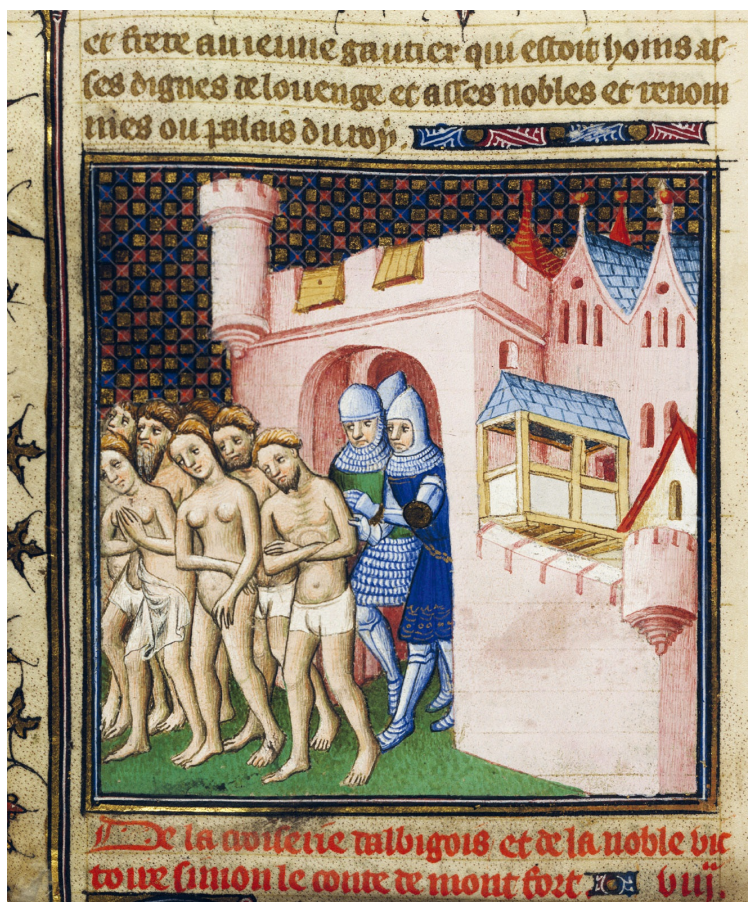 et frere au ieune gautier qui estoit homs as
ses dignes de louenge et asses nobles et renom
mes ou palais du roy.
De la croiserie dalbigois et de la noble vic
toire simon le conte de mont fort viij.